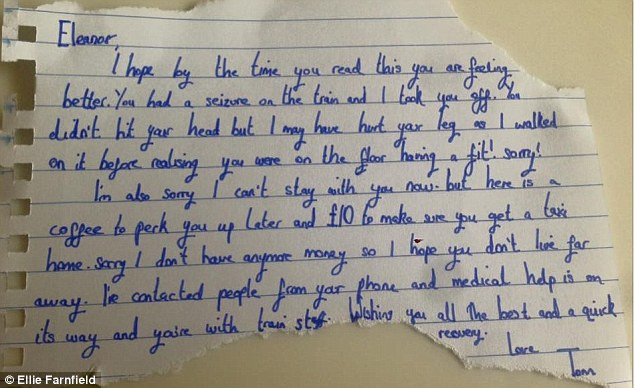 Eleanor,
I hope by the time you read this you are feeling
better. You had a seizure on the train and I took you off. You
didn't hit your head but I may have hurt your leg as I walked
on it before realising you were on the floor having a fit! sorry!
I'm also sorry I can't stay with you now. but here is a
coffee to perk you up later and £10 to make sure you get a taxi
home. sorry I don't have anymore money so I hope you don't live far
away. I've contacted people from your phone and medical help is on
its way and you're with train staff. Wishing you all the best and a quick
recovery.
Love
Tom
© Ellie Farnfield